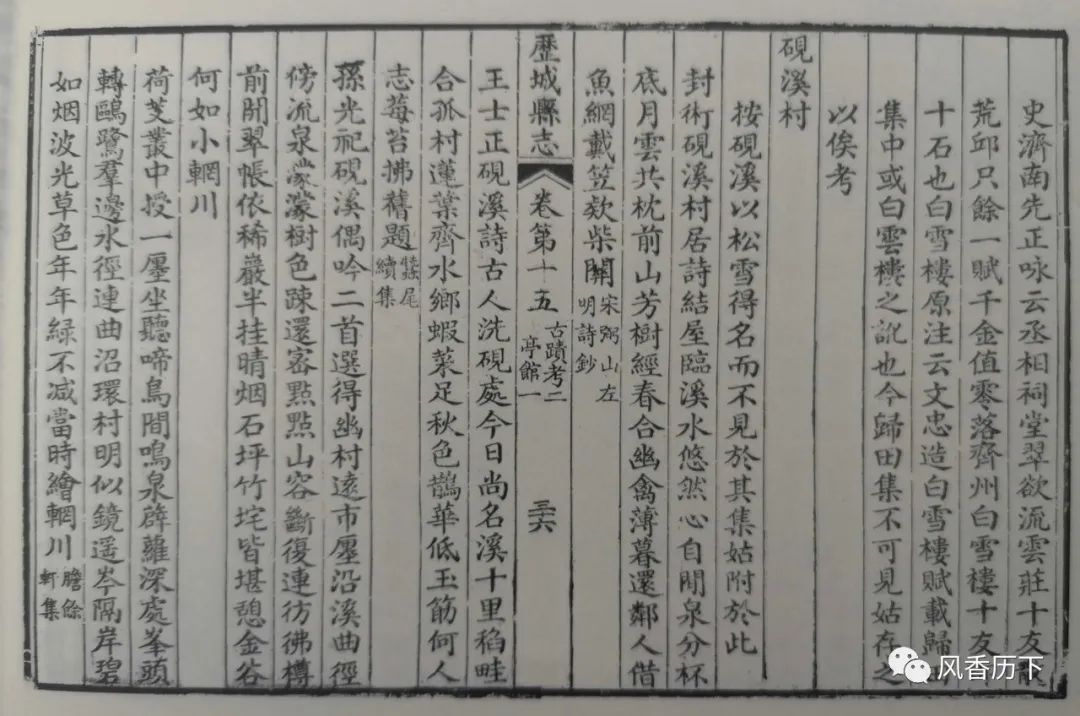 史濟南先正咏云丞相祠堂翠欲流雲莊十友
荒邱只餘一賦千金值零落齊州白雪樓十友
十石也白雪樓原注云文忠造白雪樓賦載歸
集中或白雲樓之訛也今歸田集不可見姑存之
以俟考
硯溪村
按硯溪以松雪得名而不見於其集姑附於此
封術硯溪村居詩結屋臨溪水悠然心自閒泉分杯
底月雲共枕前山芳樹經春合幽禽薄暮還鄰人借
魚網戴笠欸柴關宋弼山左明詩鈔
歷城縣志 卷第十五 古蹟考二亭館一 三六
王士正硯溪詩古人洗硯處今日尚名溪十里稻畦
合孤村蓮葉齊水鄉蝦菜足秋色鵲華低玉筯何人
志莓苔拂舊題蠶尾續集
孫光祀硯溪偶吟二首選得幽村遠市廛沿溪曲徑
傍流泉濛濛樹色疎還密點點山容斷復連彷彿樽
前開翠帳依稀巖半挂晴烟石坪竹垞皆堪憩金谷
何如小輞川
荷芰叢中授一廛坐聽啼鳥間鳴泉薜蘿深處峯頭
轉鷗鷺羣邊水徑連曲沼環村明似鏡遥岑隔岸碧
如烟波光草色年年緑不减當時繪輞川膽餘軒集
风香历下